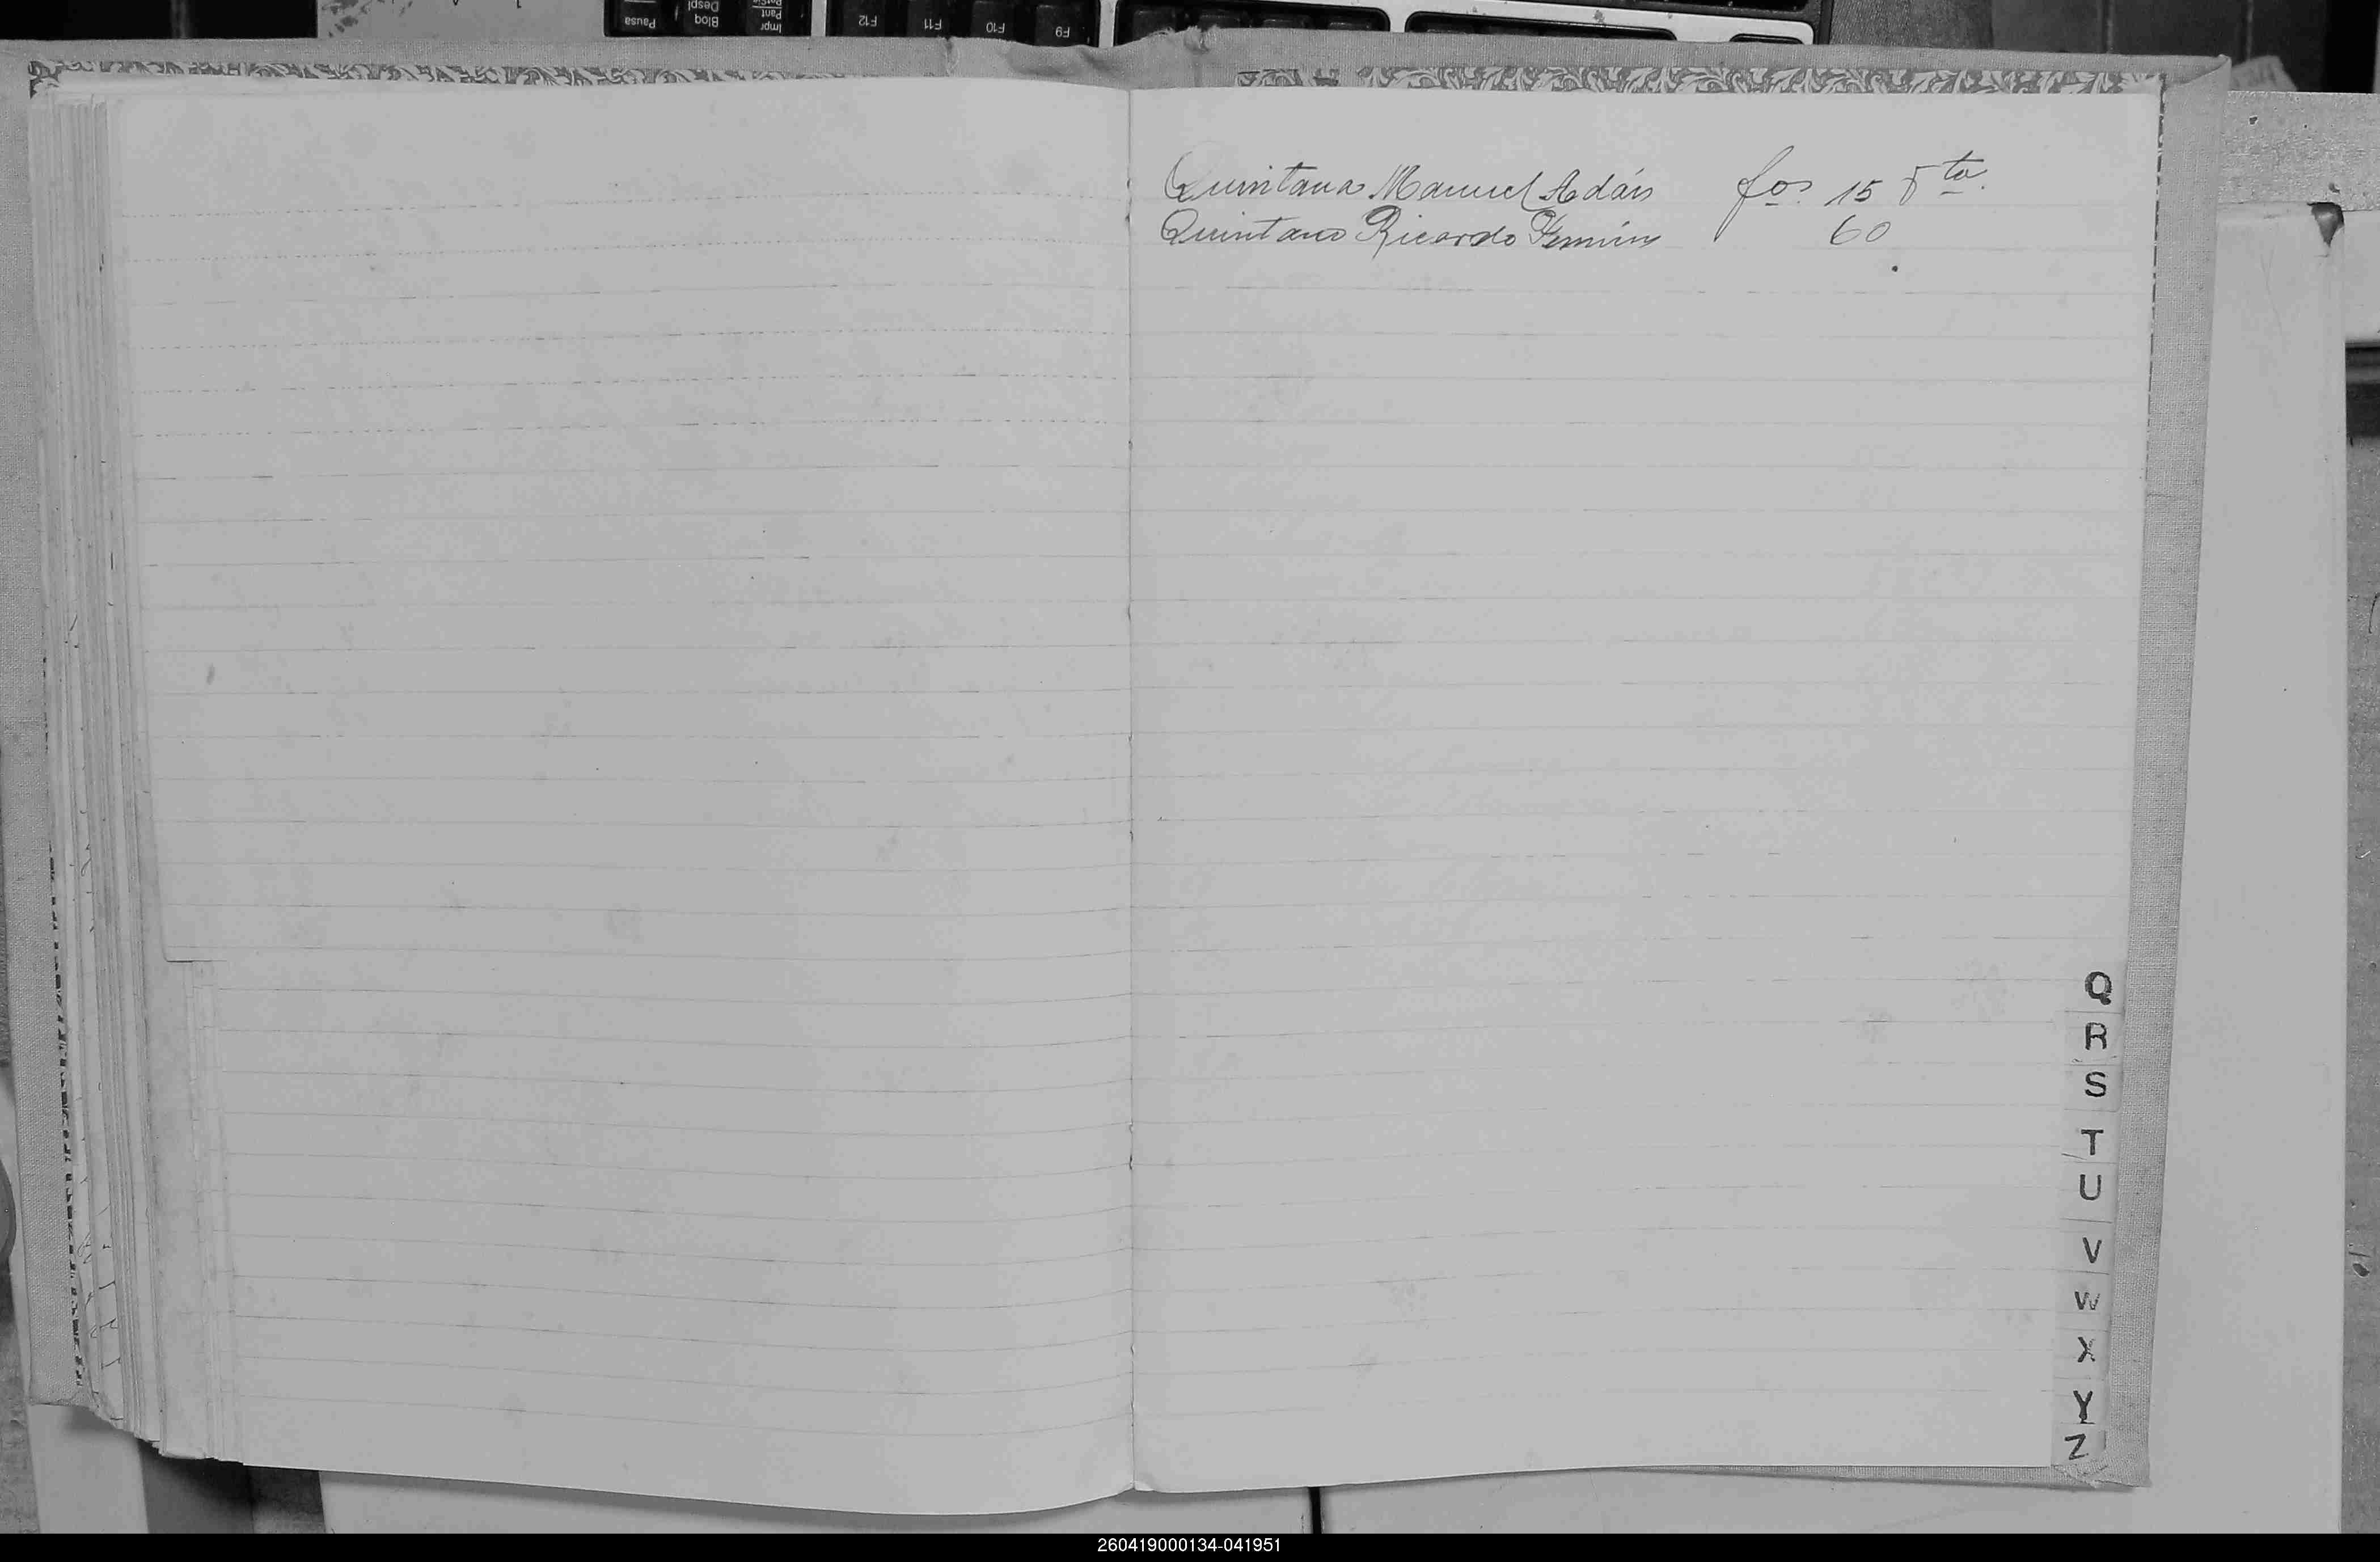 Quintana Manuel Adán fos. 15 Vta.
Quintana Ricardo Fermín 60
Q
R
S
T
U
V
W
X
Y
Z
Pausa
Bloq Despl
Impr Pant PetSis
F12
F11
F10
F9
260419000134-041951